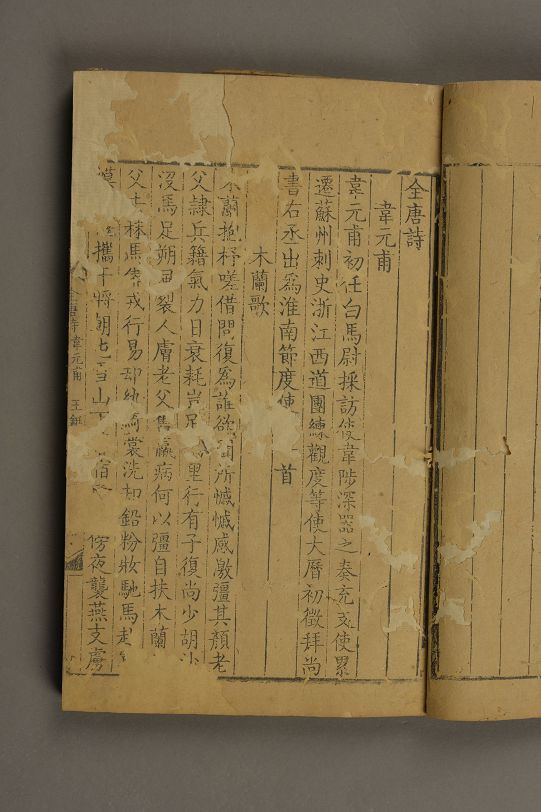 全唐詩
韋元甫
韋元甫初任白馬尉採訪使韋陟深器之奏充支使累
遷蘇州刺史浙江西道團練觀度等使大曆初徵拜尚
書右丞出爲淮南節度使 首
木蘭歌
蘭抱杼嗟借問復爲誰欲聞所慽慽感激彊其顏老
父隷兵籍氣力日衰耗豈足 里行有子復尚少胡沙
沒馬足朔風裂人膚老父舊羸病何以彊自扶木蘭
父去秣馬 戎行易却紈綺裳洗却鉛粉妝馳馬赴
攜干將朝屯雪山下 宿 傍夜襲燕支虜
全唐詩 韋元甫